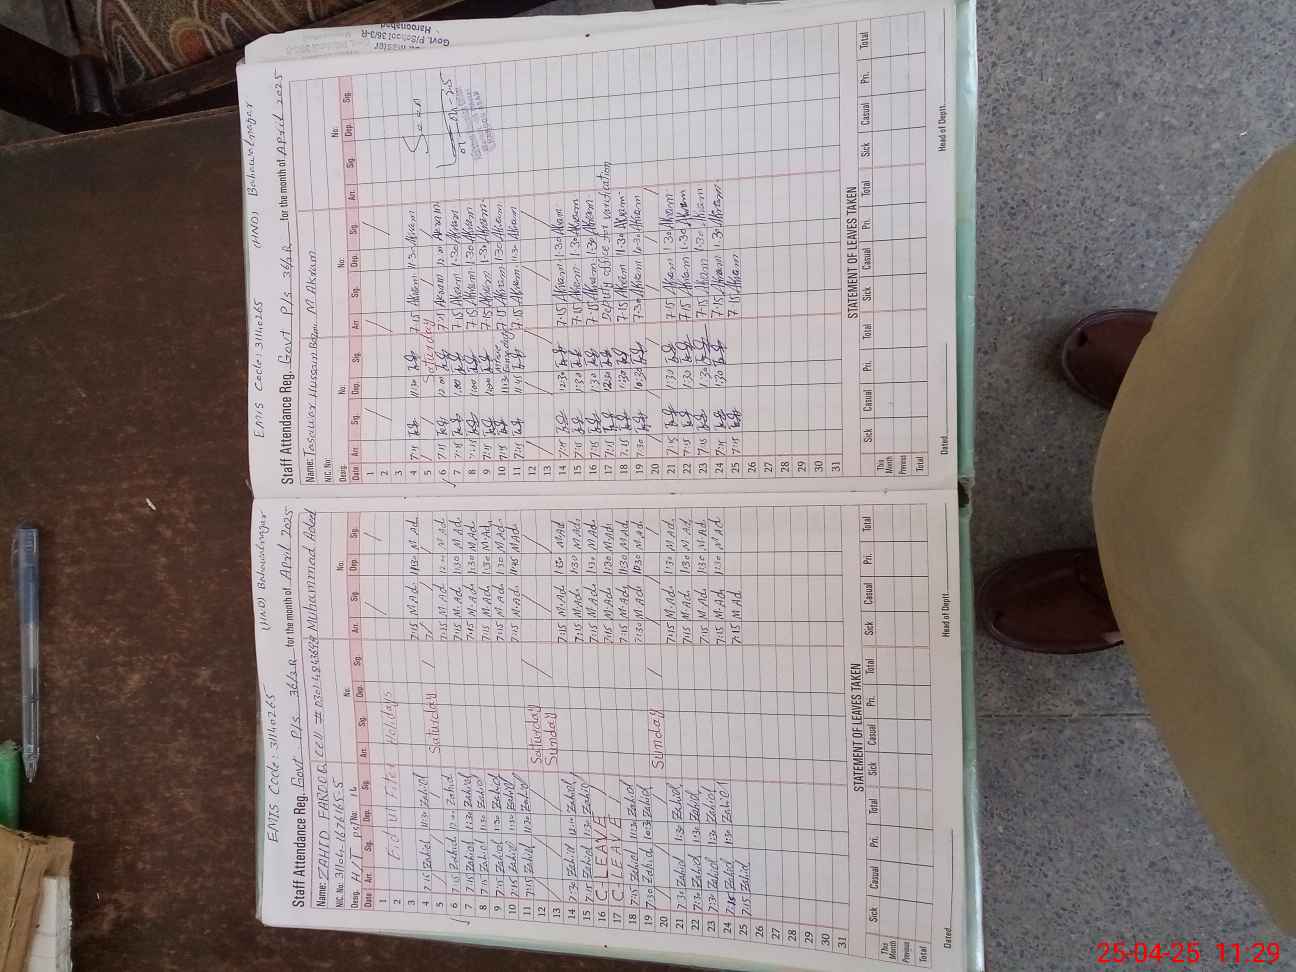 EMIS Code: 31140265 (HND) Bahawalnagar
Staff Attendance Reg. Govt P/s 36/3R for the month of April 2025
Name: ZAHID FAROOQ Cell # Muhammad Adeel
NIC. No:
Desg. H/T No. 16 No: No:
Date Arr. Sig. Dep. Sig. Arr. Sig. Dep. Sig. Arr. Sig. Dep. Sig.
1
2 Eid ul Fiter Holidays
3
4 7:15 Zahid 11:30 Zahid 7:15 M.Ad. 11:30 M.Ad.
5 Saturday
6 7:15 Zahid 12:00 Zahid 7:15 M.Ad. 12:00 M.Ad.
7 7:15 Zahid 1:30 Zahid 7:15 M.Ad. 1:30 M.Ad.
8 7:15 Zahid 1:30 Zahid 7:15 M.Ad. 1:30 M.Ad.
9 7:15 Zahid 1:30 Zahid 7:15 M.Ad. 1:30 M.Ad.
10 7:15 Zahid 1:30 Zahid 7:15 M.Ad. 1:30 M.Ad.
11 7:15 Zahid 11:30 Zahid 7:15 M.Ad. 11:45 M.Ad.
12 Saturday
13 Sunday
14 7:30 Zahid 12:10 Zahid 7:15 M.Ad. 1:30 M.Ad.
15 7:15 Zahid 1:30 Zahid 7:15 M.Ad. 1:30 M.Ad.
16 C-LEAVE 7:15 M.Ad. 1:30 M.Ad.
17 C-LEAVE 7:15 M.Ad. 1:30 M.Ad.
18 7:15 Zahid 11:30 Zahid 7:15 M.Ad. 11:30 M.Ad.
19 7:30 Zahid 10:30 Zahid 7:30 M.Ad. 10:30 M.Ad.
20 Sunday
21 7:30 Zahid 1:30 Zahid 7:15 M.Ad. 1:30 M.Ad.
22 7:30 Zahid 1:30 Zahid 7:15 M.Ad. 1:30 M.Ad.
23 7:30 Zahid 1:30 Zahid 7:15 M.Ad. 1:30 M.Ad.
24 7:15 Zahid 1:30 Zahid 7:15 M.Ad. 1:30 M.Ad.
25 7:15 Zahid 7:15 M.Ad.
26
27
28
29
30
31
STATEMENT OF LEAVES TAKEN
Sick Casual Pri. Total Sick Casual Pri. Total Sick Casual Pri. Total
This Month
Previous
Total
Dated Head of Deptt.
EMIS Code: 31140265 (HND) Bahawalnagar
Staff Attendance Reg. Govt P/s 36/3R for the month of April 2025
Name: Tasawar Hussain M Akram
NIC. No:
Desg. No: No: No:
Date Arr. Sig. Dep. Sig. Arr. Sig. Dep. Sig. Arr. Sig. Dep. Sig.
1
2
3
4 7:15 11:30 7:15 Akram 11:30 Akram Seen
5 Saturday
6 7:15 12:00 7:15 Akram 12:00 Akram
7 7:15 1:00 7:15 Akram 1:30 Akram
8 7:15 1:00 7:15 Akram 1:30 Akram
9 7:15 1:00 7:15 Akram 1:30 Akram
10 7:15 7:15 Akram 1:30 Akram
11 7:15 11:45 7:15 Akram 11:30 Akram
12
13
14 7:15 12:30 7:15 Akram 1:30 Akram
15 7:15 1:30 7:15 Akram 1:30 Akram
16 7:15 1:30 7:15 Akram 1:30 Akram
17 7:15 12:30 Deputy office for varification
18 7:15 11:30 7:15 Akram 11:30 Akram
19 7:30 10:30 7:30 Akram 10:30 Akram
20
21 7:15 1:30 7:15 Akram 1:30 Akram
22 7:15 1:30 7:15 Akram 1:30 Akram
23 7:15 1:30 7:15 Akram 1:30 Akram
24 7:15 1:30 7:15 Akram 1:30 Akram
25 7:15 7:15 Akram
26
27
28
29
30
31
STATEMENT OF LEAVES TAKEN
Sick Casual Pri. Total Sick Casual Pri. Total Sick Casual Pri. Total
This Month
Previous
Total
Dated Head of Deptt.
Govt. P/School 36/3-R
Haroonabad
25-04-25 11:29